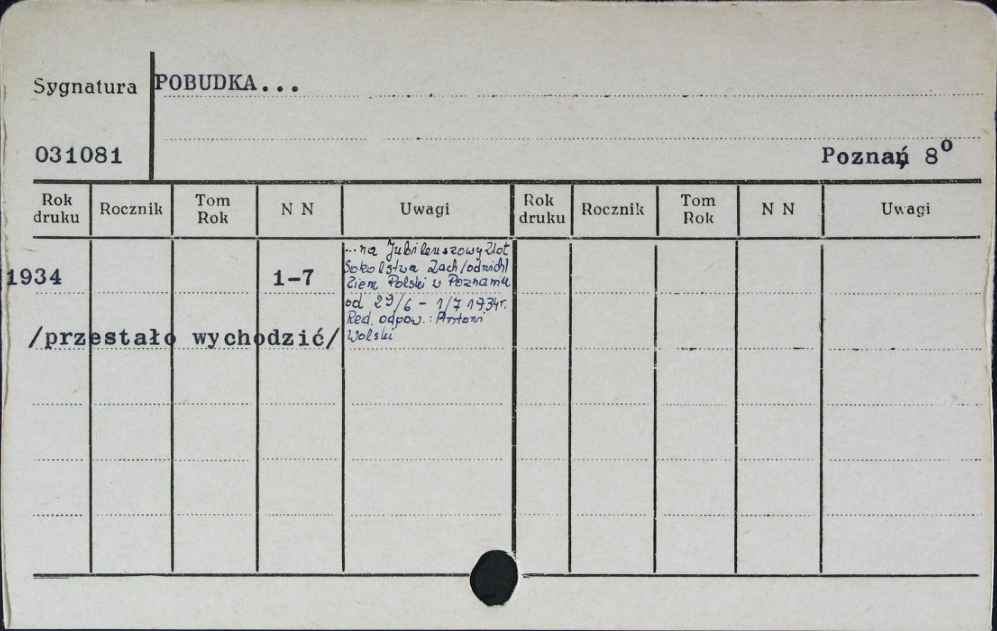 Sygnatura POBUDKA...
031081 Poznań, 8°
Rok druku Rocznik Tom Rok N N Uwagi Rok druku Rocznik Tom Rok N N Uwagi
1934 1-7
...na Jubileuszowy Zlot
Sokolstwa Zach/odnich/
Ziem Polski w Poznaniu
od 29/6 - 1/7 1934r.
Red. odpow.: Antoni
Wolski
/przestało wychodzić/